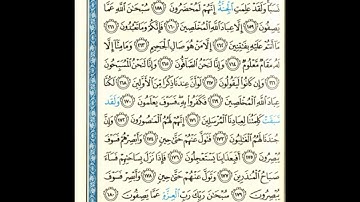 نَسَبًا وَلَقَدْ عَلِمَتِ الْجِنَّةُ إِنَّهُمْ لَمُحْضَرُونَ ١٥٨ سُبْحَٰنَ اللَّهِ عَمَّا
يَصِفُونَ ١٥٩ إِلَّا عِبَادَ اللَّهِ الْمُخْلَصِينَ ١٦٠ فَإِنَّكُمْ وَمَا تَعْبُدُونَ ١٦١
مَا أَنتُمْ عَلَيْهِ بِفَٰتِنِينَ ١٦٢ إِلَّا مَنْ هُوَ صَالِ الْجَحِيمِ ١٦٣ وَمَا مِنَّا إِلَّا
لَهُ مَقَامٌ مَّعْلُومٌ ١٦٤ وَإِنَّا لَنَحْنُ الصَّافُّونَ ١٦٥ وَإِنَّا لَنَحْنُ الْمُسَبِّحُونَ
١٦٦ وَإِن كَانُوا لَيَقُولُونَ ١٦٧ لَوْ أَنَّ عِندَنَا ذِكْرًا مِّنَ الْأَوَّلِينَ ١٦٨ لَكُنَّا
عِبَادَ اللَّهِ الْمُخْلَصِينَ ١٦٩ فَكَفَرُوا بِهِ فَسَوْفَ يَعْلَمُونَ ١٧٠ وَلَقَدْ
سَبَقَتْ كَلِمَتُنَا لِعِبَادِنَا الْمُرْسَلِينَ ١٧١ إِنَّهُمْ لَهُمُ الْمَنصُورُونَ ١٧٢ وَإِنَّ
جُندَنَا لَهُمُ الْغَٰلِبُونَ ١٧٣ فَتَوَلَّ عَنْهُمْ حَتَّىٰ حِينٍ ١٧٤ وَأَبْصِرْهُمْ فَسَوْفَ
يُبْصِرُونَ ١٧٥ أَفَبِعَذَابِنَا يَسْتَعْجِلُونَ ١٧٦ فَإِذَا نَزَلَ بِسَاحَتِهِمْ فَسَاءَ
صَبَاحُ الْمُنذَرِينَ ١٧٧ وَتَوَلَّ عَنْهُمْ حَتَّىٰ حِينٍ ١٧٨ وَأَبْصِرْ فَسَوْفَ
يُبْصِرُونَ ١٧٩ سُبْحَٰنَ رَبِّكَ رَبِّ الْعِزَّةِ عَمَّا يَصِفُونَ ١٨٠